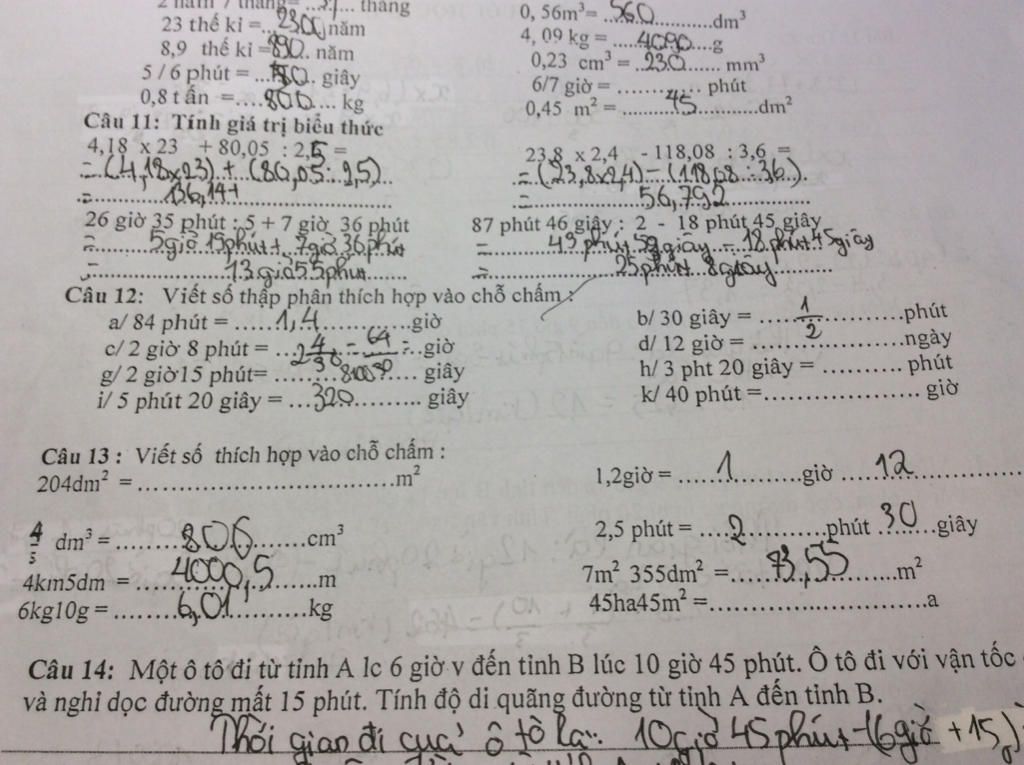 2 năm 7 tháng= ...31... tháng
23 thế kỉ =..2300.năm
8,9 thế kỉ =890.. năm
5 / 6 phút = ...50.. giây
0,8 t ấn =....800.... kg
0, 56m³= ..560..........dm³
4, 09 kg = ....4090....g
0,23 cm³ = ..230....... mm³
6/7 giờ = .............. phút
0,45 m² = .........45...........dm²
Câu 11: Tính giá trị biểu thức
4,18 x 23 + 80,05 : 2,5 =
= (4,18x23) + (80,05: 2,5)
= 136,14
23,8 x 2,4 - 118,08 : 3,6 =
= (23,8x2,4) - (118,08 : 36)
= 56,792
26 giờ 35 phút : 5 + 7 giờ 36 phút
= 5giờ 19phút + 7giờ 36phút
= 13 giờ 55 phút
87 phút 46 giây : 2 - 18 phút 45 giây
= 43 phút 53 giây - 18 phút 45 giây
= 25 phút 8 giây
Câu 12: Viết số thập phân thích hợp vào chỗ chấm :
a/ 84 phút = ......1,4............giờ
b/ 30 giây = .....1/2............phút
c/ 2 giờ 8 phút = ...2 4/30 = 64/30 =..giờ
d/ 12 giờ = ......................ngày
g/ 2 giờ15 phút= ................ giây
h/ 3 pht 20 giây = .......... phút
i/ 5 phút 20 giây = ...320........... giây
k/ 40 phút =...................... giờ
Câu 13 : Viết số thích hợp vào chỗ chấm :
204dm² = .................................m²
1,2giờ = .....1..........giờ ...12..................
4/5 dm³ = .........800.......cm³
2,5 phút = ....2..........phút 30......giây
4km5dm = .....4000,5..........m
7m² 355dm² =.....73,55...............m²
6kg10g = ........6,01..........kg
45ha45m² =............................a
Câu 14: Một ô tô đi từ tỉnh A lc 6 giờ v đến tỉnh B lúc 10 giờ 45 phút. Ô tô đi với vận tốc
và nghỉ dọc đường mất 15 phút. Tính độ di quãng đường từ tỉnh A đến tỉnh B.
Thời gian đi của ô tô là: 10giờ 45 phút -(6giờ + 15